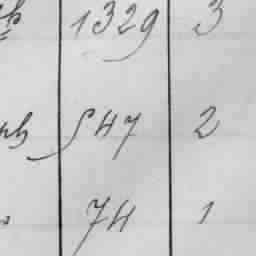 1329 3
547 2
74 1